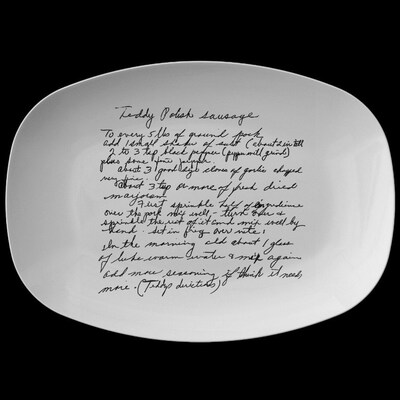 Teddy Polish sausage
To every 5 lbs of ground pork
add 1 small shaker of salt (about 2 in tall
2 to 3 tsp black pepper (peppermill grind)
plus some fine pepper
about 3 good size cloves of garlic chopped
very fine.
about 3 tsp or more of dried
marjoram
First sprinkle half of ingredients
over the pork mix well - turn over &
sprinkle the rest of it and mix well by
hand. set in frig over nite,
In the morning add about 1 glass
of luke warm water & mix again
add more seasoning if think it needs
more. (Teddys directions)